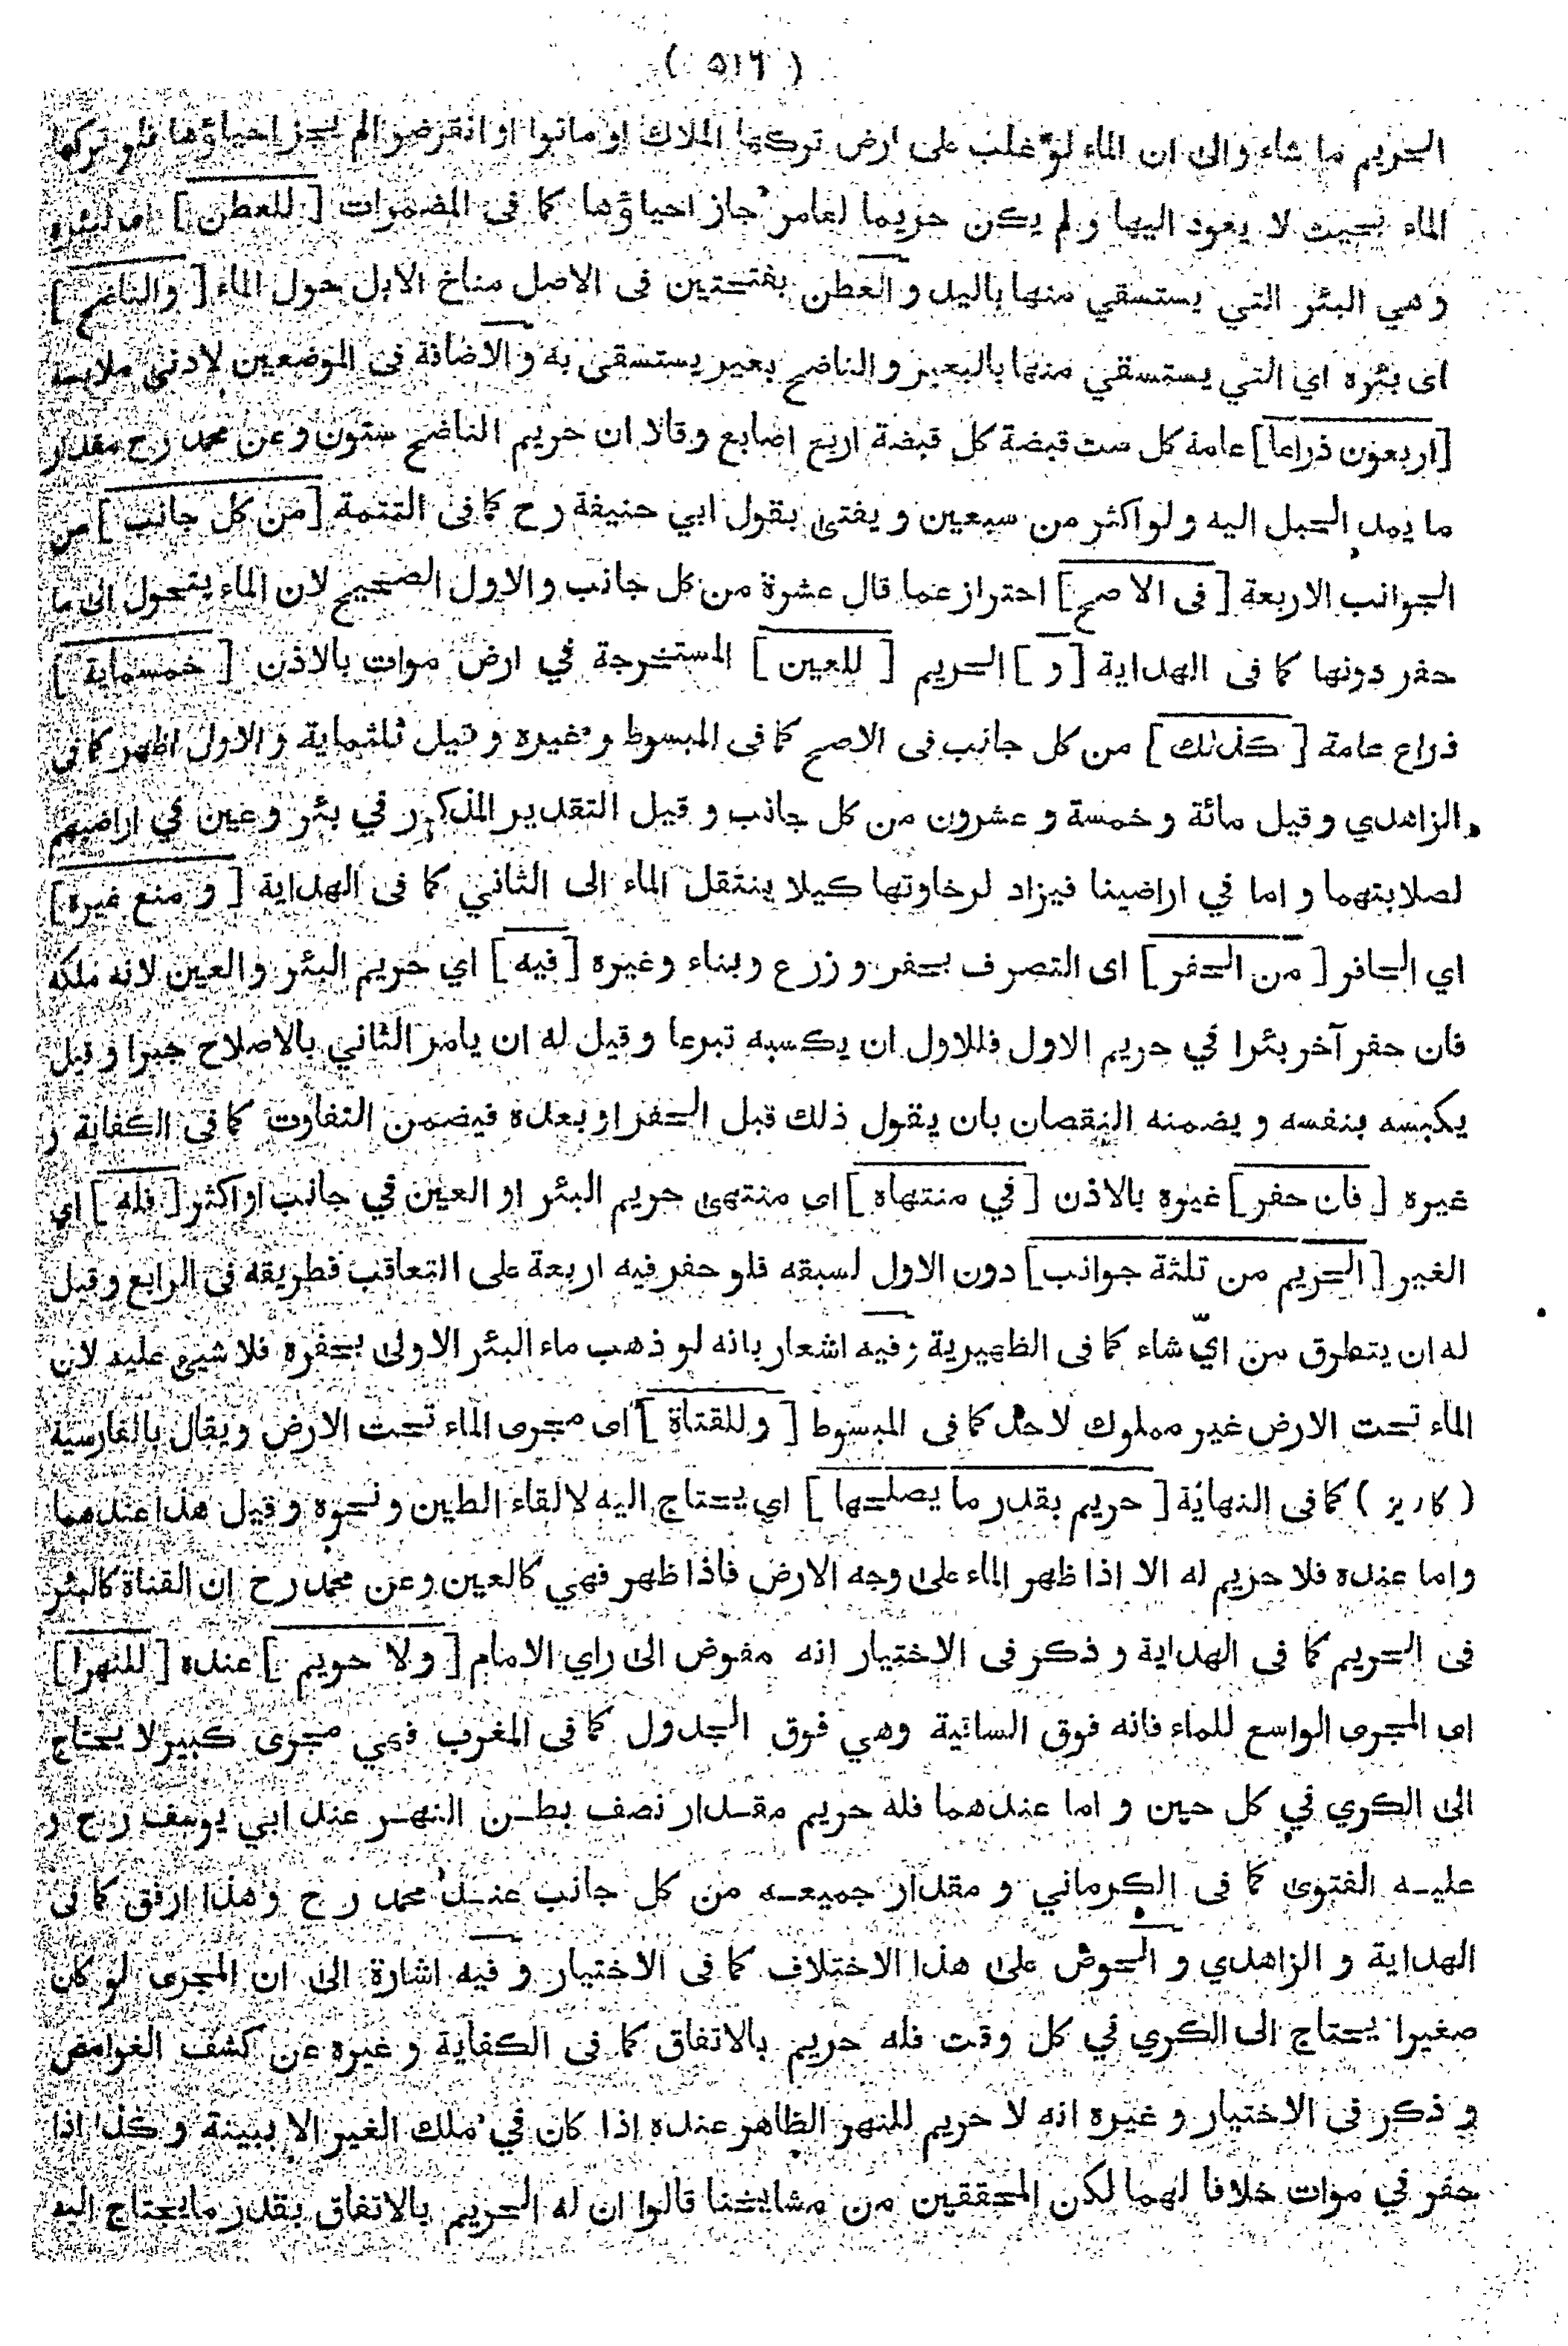 ( ٥١٦ )
الحريم ما شاء والى ان الماء لو غلب على ارض تركها الملاك او ماتوا او انقرضوا لم يجز احياؤها فلو تركها
الماء بحيث لا يعود اليها و لم يكن حريما لعامر جاز احياؤها كما فى المضمرات [ للعطن ] اى لبئره
و هي البئر التي يستسقي منها باليد و العطن بفتحتين فى الاصل مناخ الابل حول الماء [ والناضح ]
اى بئره اي التي يستسقي منها بالبعير و الناضح بعير يستسقى به و الاضافة فى الموضعين لادنى ملابسة
[ اربعون ذراعا ] عامة كل ست قبضة كل قبضة اربع اصابع و قالا ان حريم الناضح ستون و عن محمد رح مقدار
ما يمد الحبل اليه و لو اكثر من سبعين و يفتى بقول ابي حنيفة رح كما فى التتمة [ من كل جانب ] من
الجوانب الاربعة [ فى الاصح ] احتراز عما قال عشرة من كل جانب و الاول الصحيح لان الماء يتحول الى ما
حفر دونها كما فى الهداية [ و ] الحريم [ للعين ] المستخرجة في ارض موات بالاذن [ خمسماية ]
ذراع عامة [ كذلك ] من كل جانب فى الاصح كما فى المبسوط و غيره و قيل ثلثماية و الاول اظهر كما فى
الزاهدي و قيل مائة و خمسة و عشرون من كل جانب و قيل التقدير المذكور في بئر و عين في اراضيهم
لصلابتهما و اما في اراضينا فيزاد لرخاوتها كيلا ينتقل الماء الى الثاني كما فى الهداية [ و منع غيره ]
اي الحافر [ من الحفر ] اى التصرف بحفر و زرع و بناء و غيره [ فيه ] اي حريم البئر و العين لانه ملكه
فان حفر آخر بئرا في حريم الاول فللاول ان يكسبه تبرعا و قيل له ان يامر الثاني بالاصلاح جبرا و قيل
يكبسه بنفسه و يضمنه النقصان بان يقول ذلك قبل الحفر او بعده فيضمن التفاوت كما فى الكفاية و
غيره [ فان حفر ] غيره بالاذن [ في منتهاه ] اى منتهى حريم البئر او العين في جانب او اكثر [ فله ] اي
الغير [ الحريم من ثلثة جوانب ] دون الاول لسبقه فلو حفر فيه اربعة على التعاقب فطريقه فى الرابع و قيل
له ان يتطرق من ايّ شاء كما فى الظهيرية و فيه اشعار بانه لو ذهب ماء البئر الاولى بحفره فلا شيئ عليه لان
الماء تحت الارض غير مملوك لاحد كما فى المبسوط [ و للقناة ] اى مجرى الماء تحت الارض و يقال بالفارسية
( كاريز ) كما فى النهاية [ حريم بقدر ما يصلحها ] اي يحتاج اليه لالقاء الطين و نحوه و قيل هذا عندهما
و اما عنده فلا حريم له الا اذا ظهر الماء على وجه الارض فاذا ظهر فهي كالعين و عن محمد رح ان القناة كالبئر
فى الحريم كما فى الهداية و ذكر فى الاختيار انه مفوض الى راي الامام [ و لا حريم ] عنده [ للنهر ]
اى المجرى الواسع للماء فانه فوق الساقية وهي فوق الجدول كما فى المغرب فهي مجرى كبير لا يحتاج
الى الكري في كل حين و اما عندهما فله حريم مقدار نصف بطن النهر عند ابي يوسف رح و
عليه الفتوى كما فى الكرماني و مقدار جميعه من كل جانب عند محمد رح و هذا ارفق كما فى
الهداية و الزاهدي و الحوض على هذا الاختلاف كما فى الاختيار و فيه اشارة الى ان المجرى لو كان
صغيرا يحتاج الى الكري في كل وقت فله حريم بالاتفاق كما فى الكفاية و غيره عن كشف الغوامض
و ذكر فى الاختيار و غيره انه لا حريم للنهر الظاهر عنده اذا كان في ملك الغير الا ببينة و كذا اذا
حفر في موات خلافا لهما لكن المحققين من مشايخنا قالوا ان له الحريم بالاتفاق بقدر ما يحتاج اليه